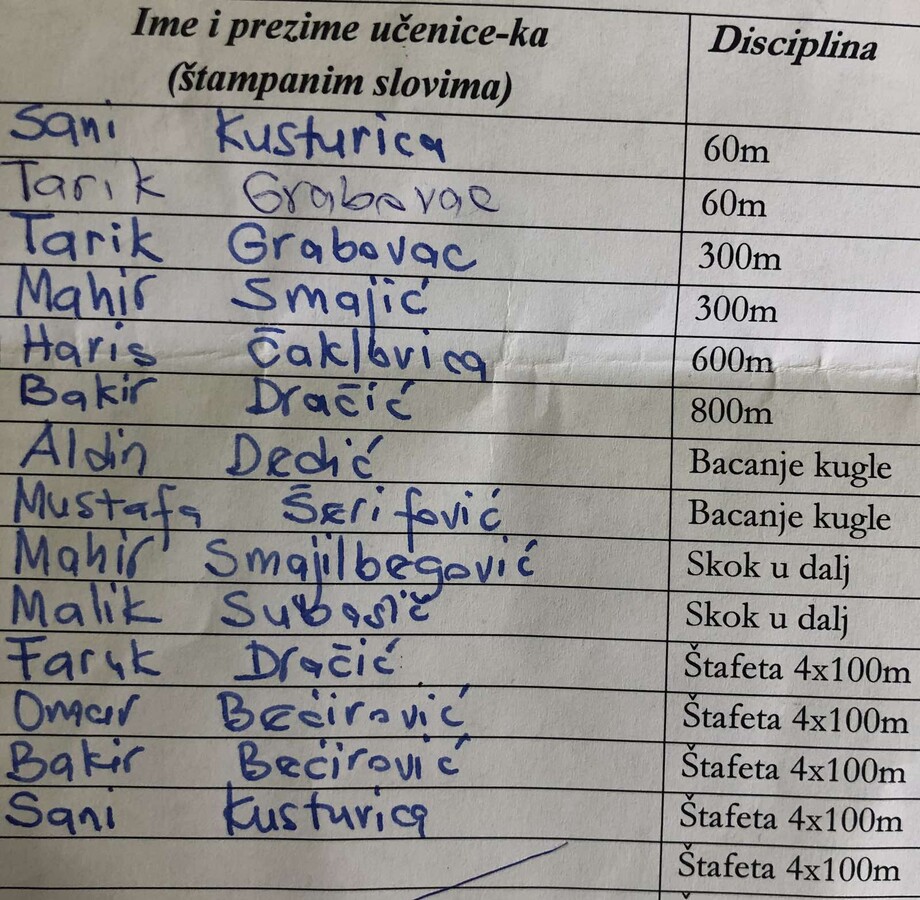 Ime i prezime učenice-ka Disciplina
(štampanim slovima)
Sani Kusturica 60m
Tarik Grabovac 60m
Tarik Grabovac 300m
Mahir Smajić 300m
Haris Čaklovica 600m
Bakir Dračić 800m
Aldin Dedić Bacanje kugle
Mustafa Šerifović Bacanje kugle
Mahir Smajilbegović Skok u dalj
Malik Subasič Skok u dalj
Faruk Dračić Štafeta 4x100m
Omar Bećirović Štafeta 4x100m
Bakir Bećirović Štafeta 4x100m
Sani Kusturica Štafeta 4x100m
Štafeta 4x100m